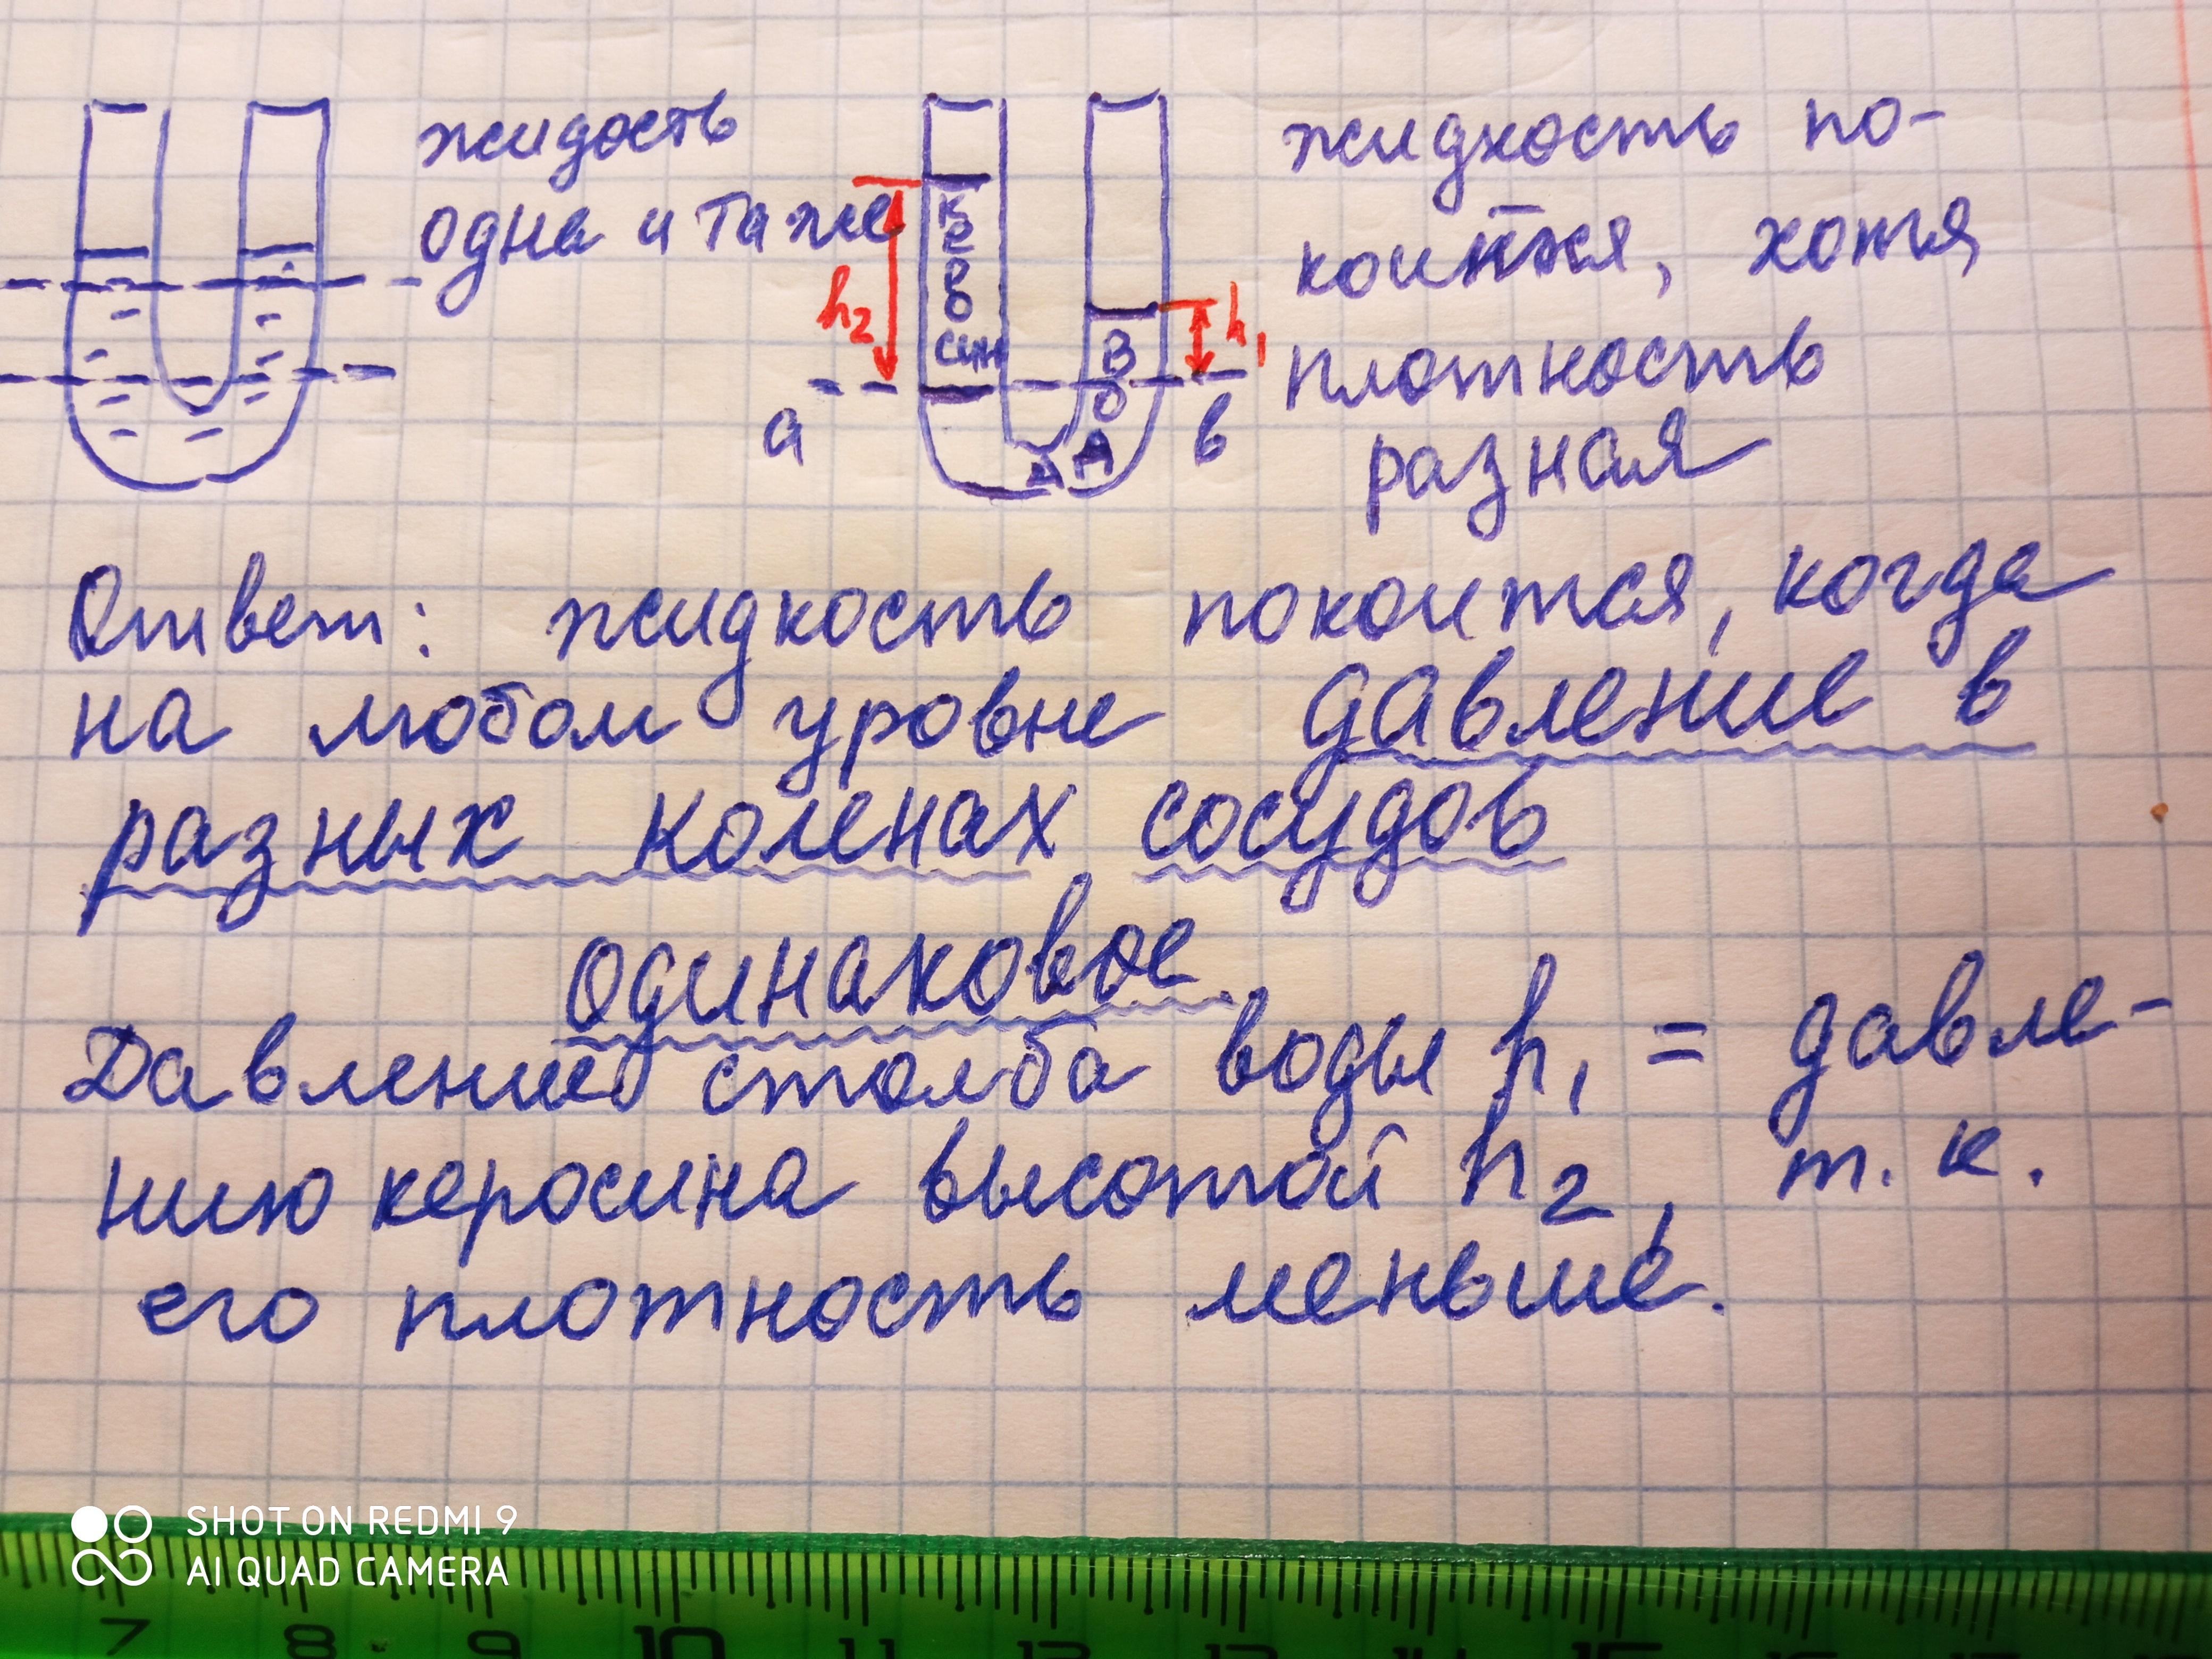 жидость
одна и та же
h2
К
е
р
о
син
В
О
Д
А
h1
а
в
жидкость по-
коится, хотя
плотность
разная
Ответ: жидкость покоится, когда
на любом уровне давление в
разных коленах сосудов
одинаковое.
Давление столба воды h1 = давле-
нию керосина высотой h2, т.к.
его плотность меньше.
SHOT ON REDMI 9
AI QUAD CAMERA
7 8 9 10 11 12 13 14 15 16 17